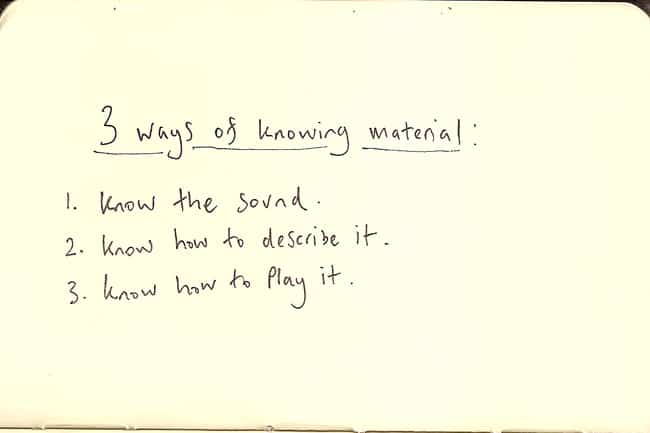 3 ways of knowing material:
1. Know the sound.
2. Know how to describe it.
3. Know how to Play it.